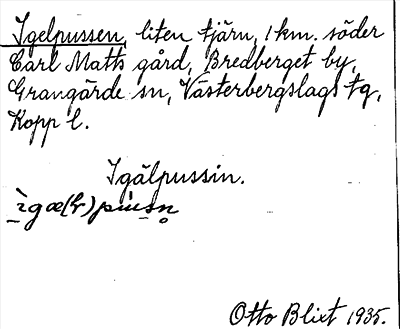 Igelpussen, liten tjärn, 1 km. söder
Carl Matts gård, Bredberget by,
Grangärde sn, Västerbergslags tg,
Kopp l.
Igälpussin.
Otto Blixt 1935.